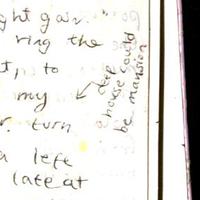 ght gain
ring the
t, to
my
r. turn
a left
late at
deep
a house could
be mansion